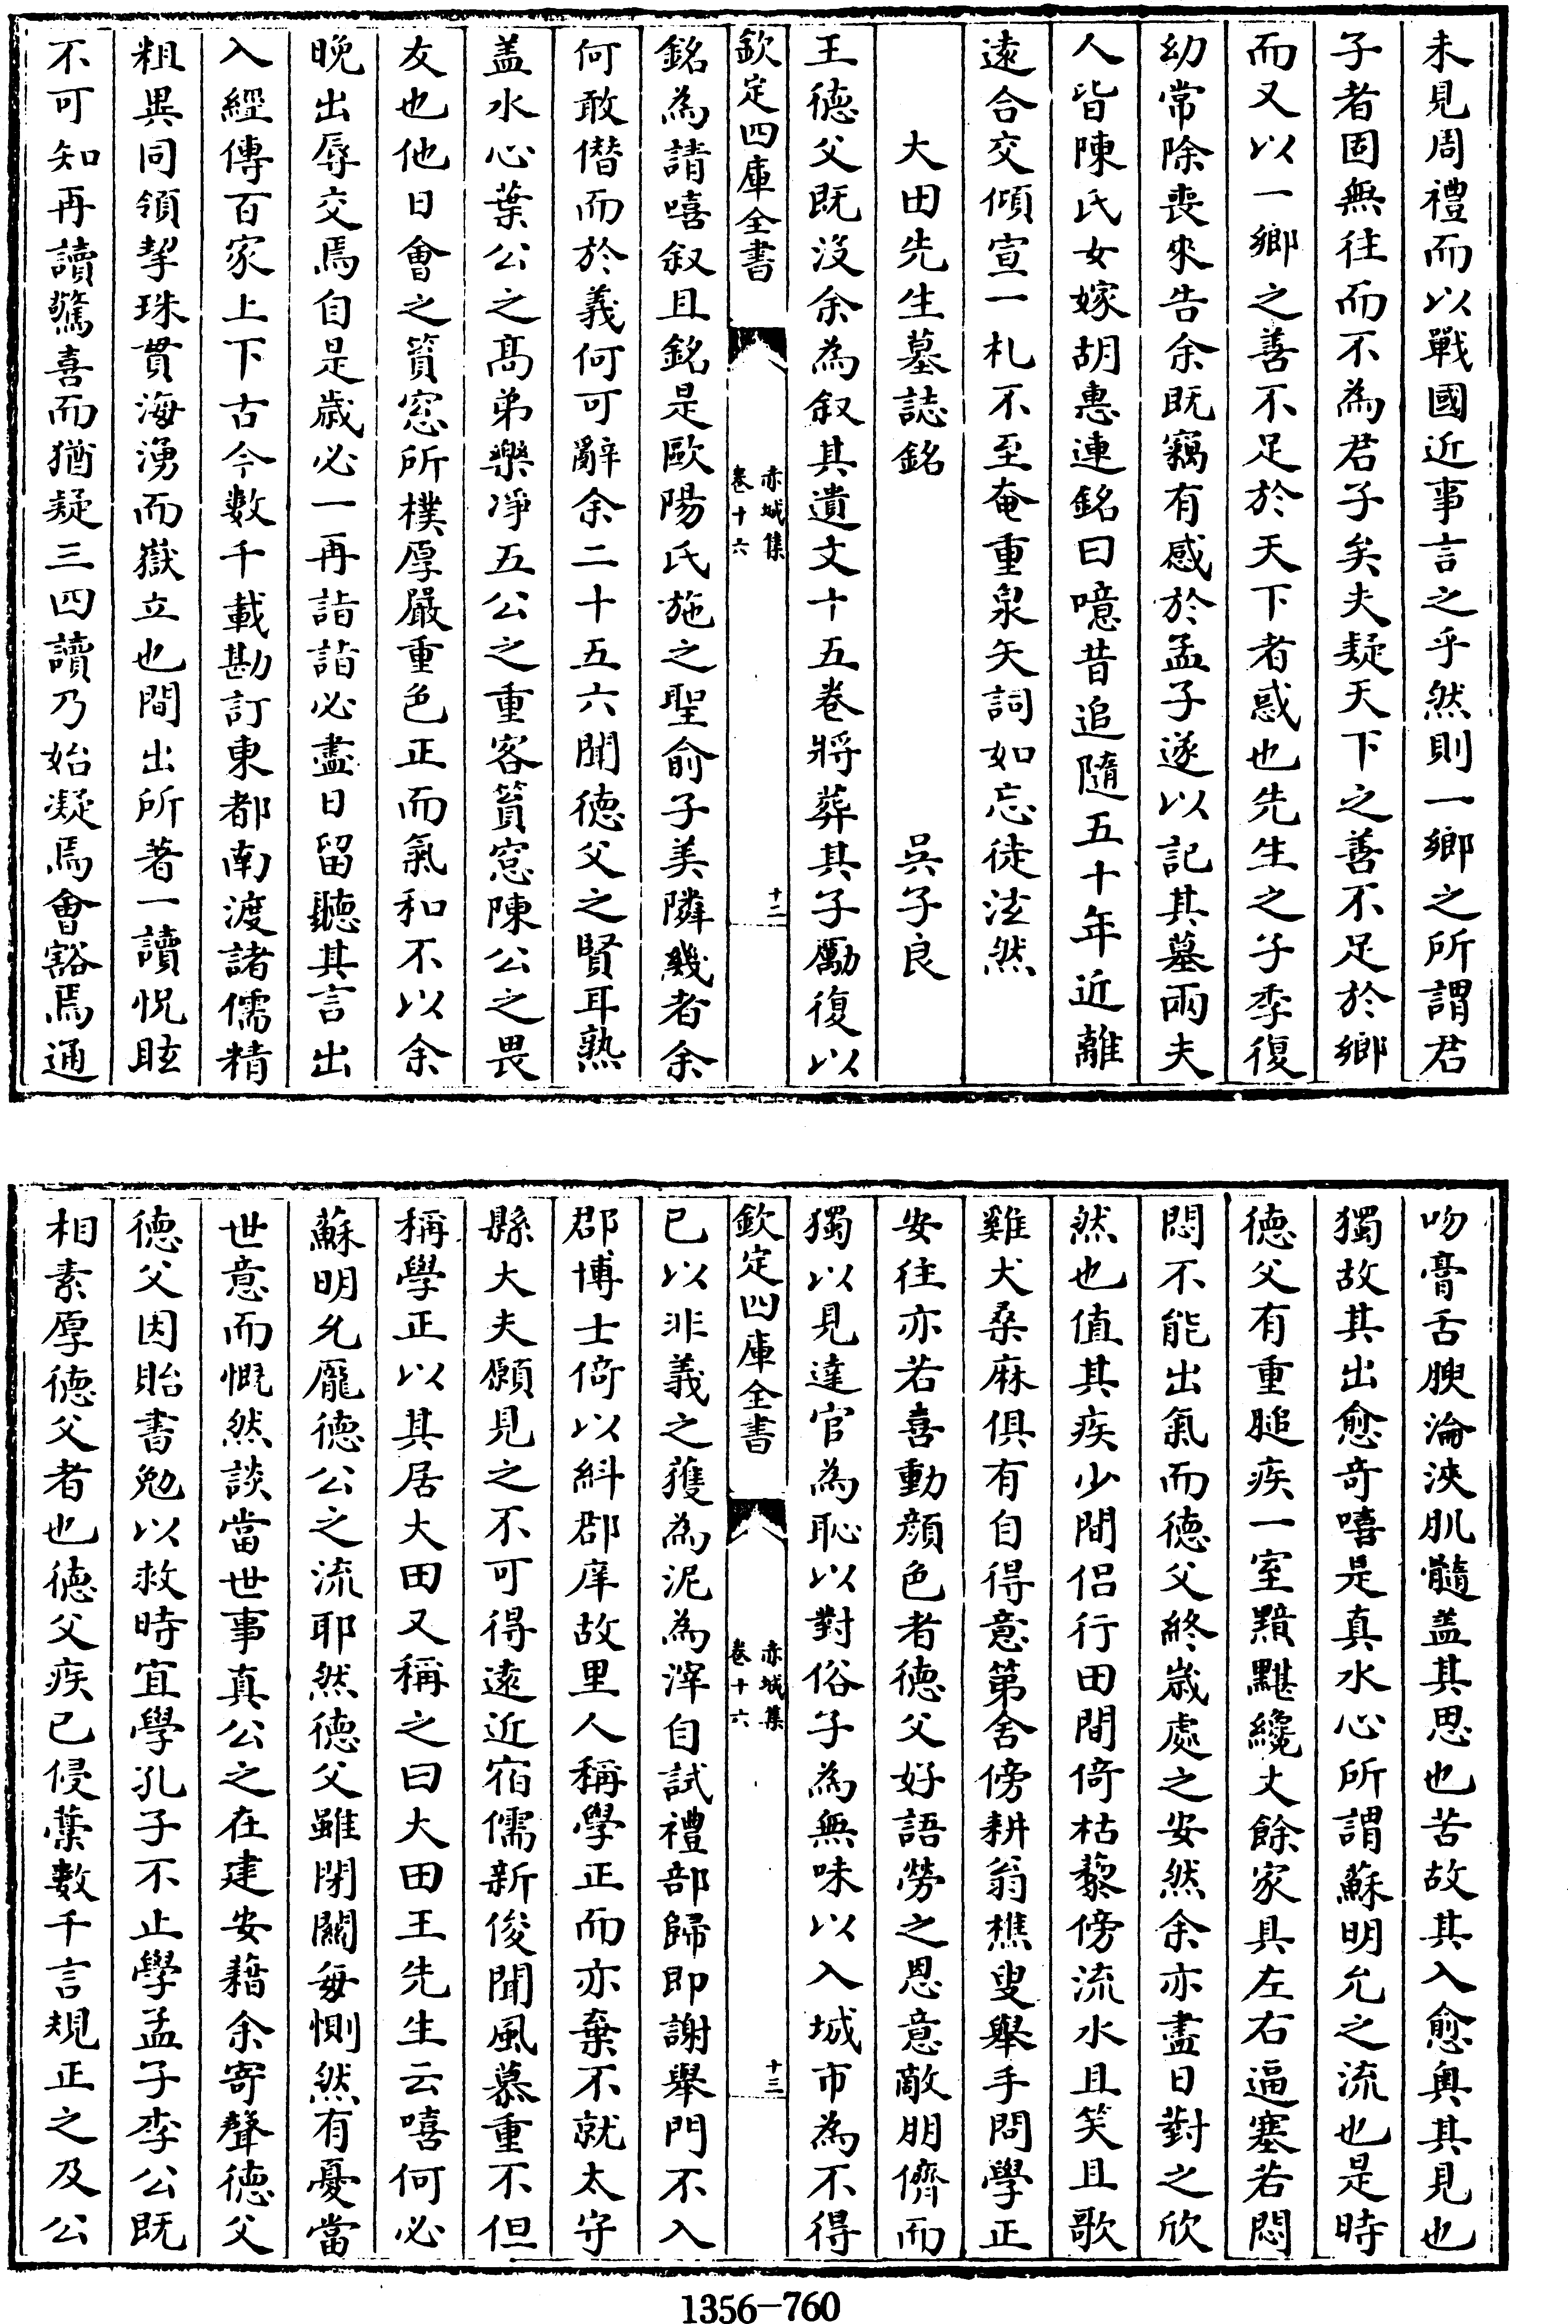 未見周禮而以戰國近事言之乎然則一鄉之所謂君
子者固無往而不為君子矣夫疑天下之善不足於鄉
而又以一鄉之善不足於天下者惑也先生之子季復
幼常除喪來告余既竊有感於孟子遂以記其墓兩夫
人皆陳氏女嫁胡惠連銘曰噫昔追隨五十年近離
遠合交傾宣一札不至奄重泉矢詞如忘徒泫然
大田先生墓誌銘　吳子良
王德父既沒余為叙其遺文十五卷將葬其子勵復以
欽定四庫全書　赤城集卷十六　十二
銘為請嘻叙且銘是歐陽氏施之聖俞子美隣幾者余
何敢僭而於義何可辭余二十五六聞德父之賢耳熟
盖水心葉公之髙弟樂淨五公之重客篔窓陳公之畏
友也他日會之篔窓所樸厚嚴重色正而氣和不以余
晚出辱交焉自是歲必一再詣詣必盡日留聽其言出
入經傳百家上下古今數千載勘訂東都南渡諸儒精
粗異同領挈珠貫海湧而嶽立也間出所著一讀怳眩
不可知再讀驚喜而猶疑三四讀乃始凝焉會豁焉通
吻膏舌腴淪浹肌髓盖其思也苦故其入愈奥其見也
獨故其出愈奇嘻是真水心所謂蘇明允之流也是時
德父有重膇疾一室黯黮纔丈餘家具左右逼塞若悶
悶不能出氣而德父終歲處之安然余亦盡日對之欣
然也值其疾少間侣行田間倚枯藜傍流水且笑且歌
雞犬桑麻俱有自得意第舍傍耕翁樵叟舉手問學正
安往亦若喜動顔色者德父好語勞之恩意敵朋儕而
獨以見達官為恥以對俗子為無味以入城市為不得
欽定四庫全書　赤城集卷十六　十三
已以非義之獲為泥為滓自試禮部歸即謝舉門不入
郡博士倚以糾郡庠故里人稱學正而亦棄不就太守
縣大夫願見之不可得遠近宿儒新俊聞風慕重不但
稱學正以其居大田又稱之曰大田王先生云嘻何必
蘇明允龐德公之流耶然德父雖閉關每惻然有憂當
世意而慨然談當世事真公之在建安藉余寄聲德父
德父因貽書勉以救時宜學孔子不止學孟子李公既
相素厚德父者也德父疾已侵藁數千言規正之及公
1356—760